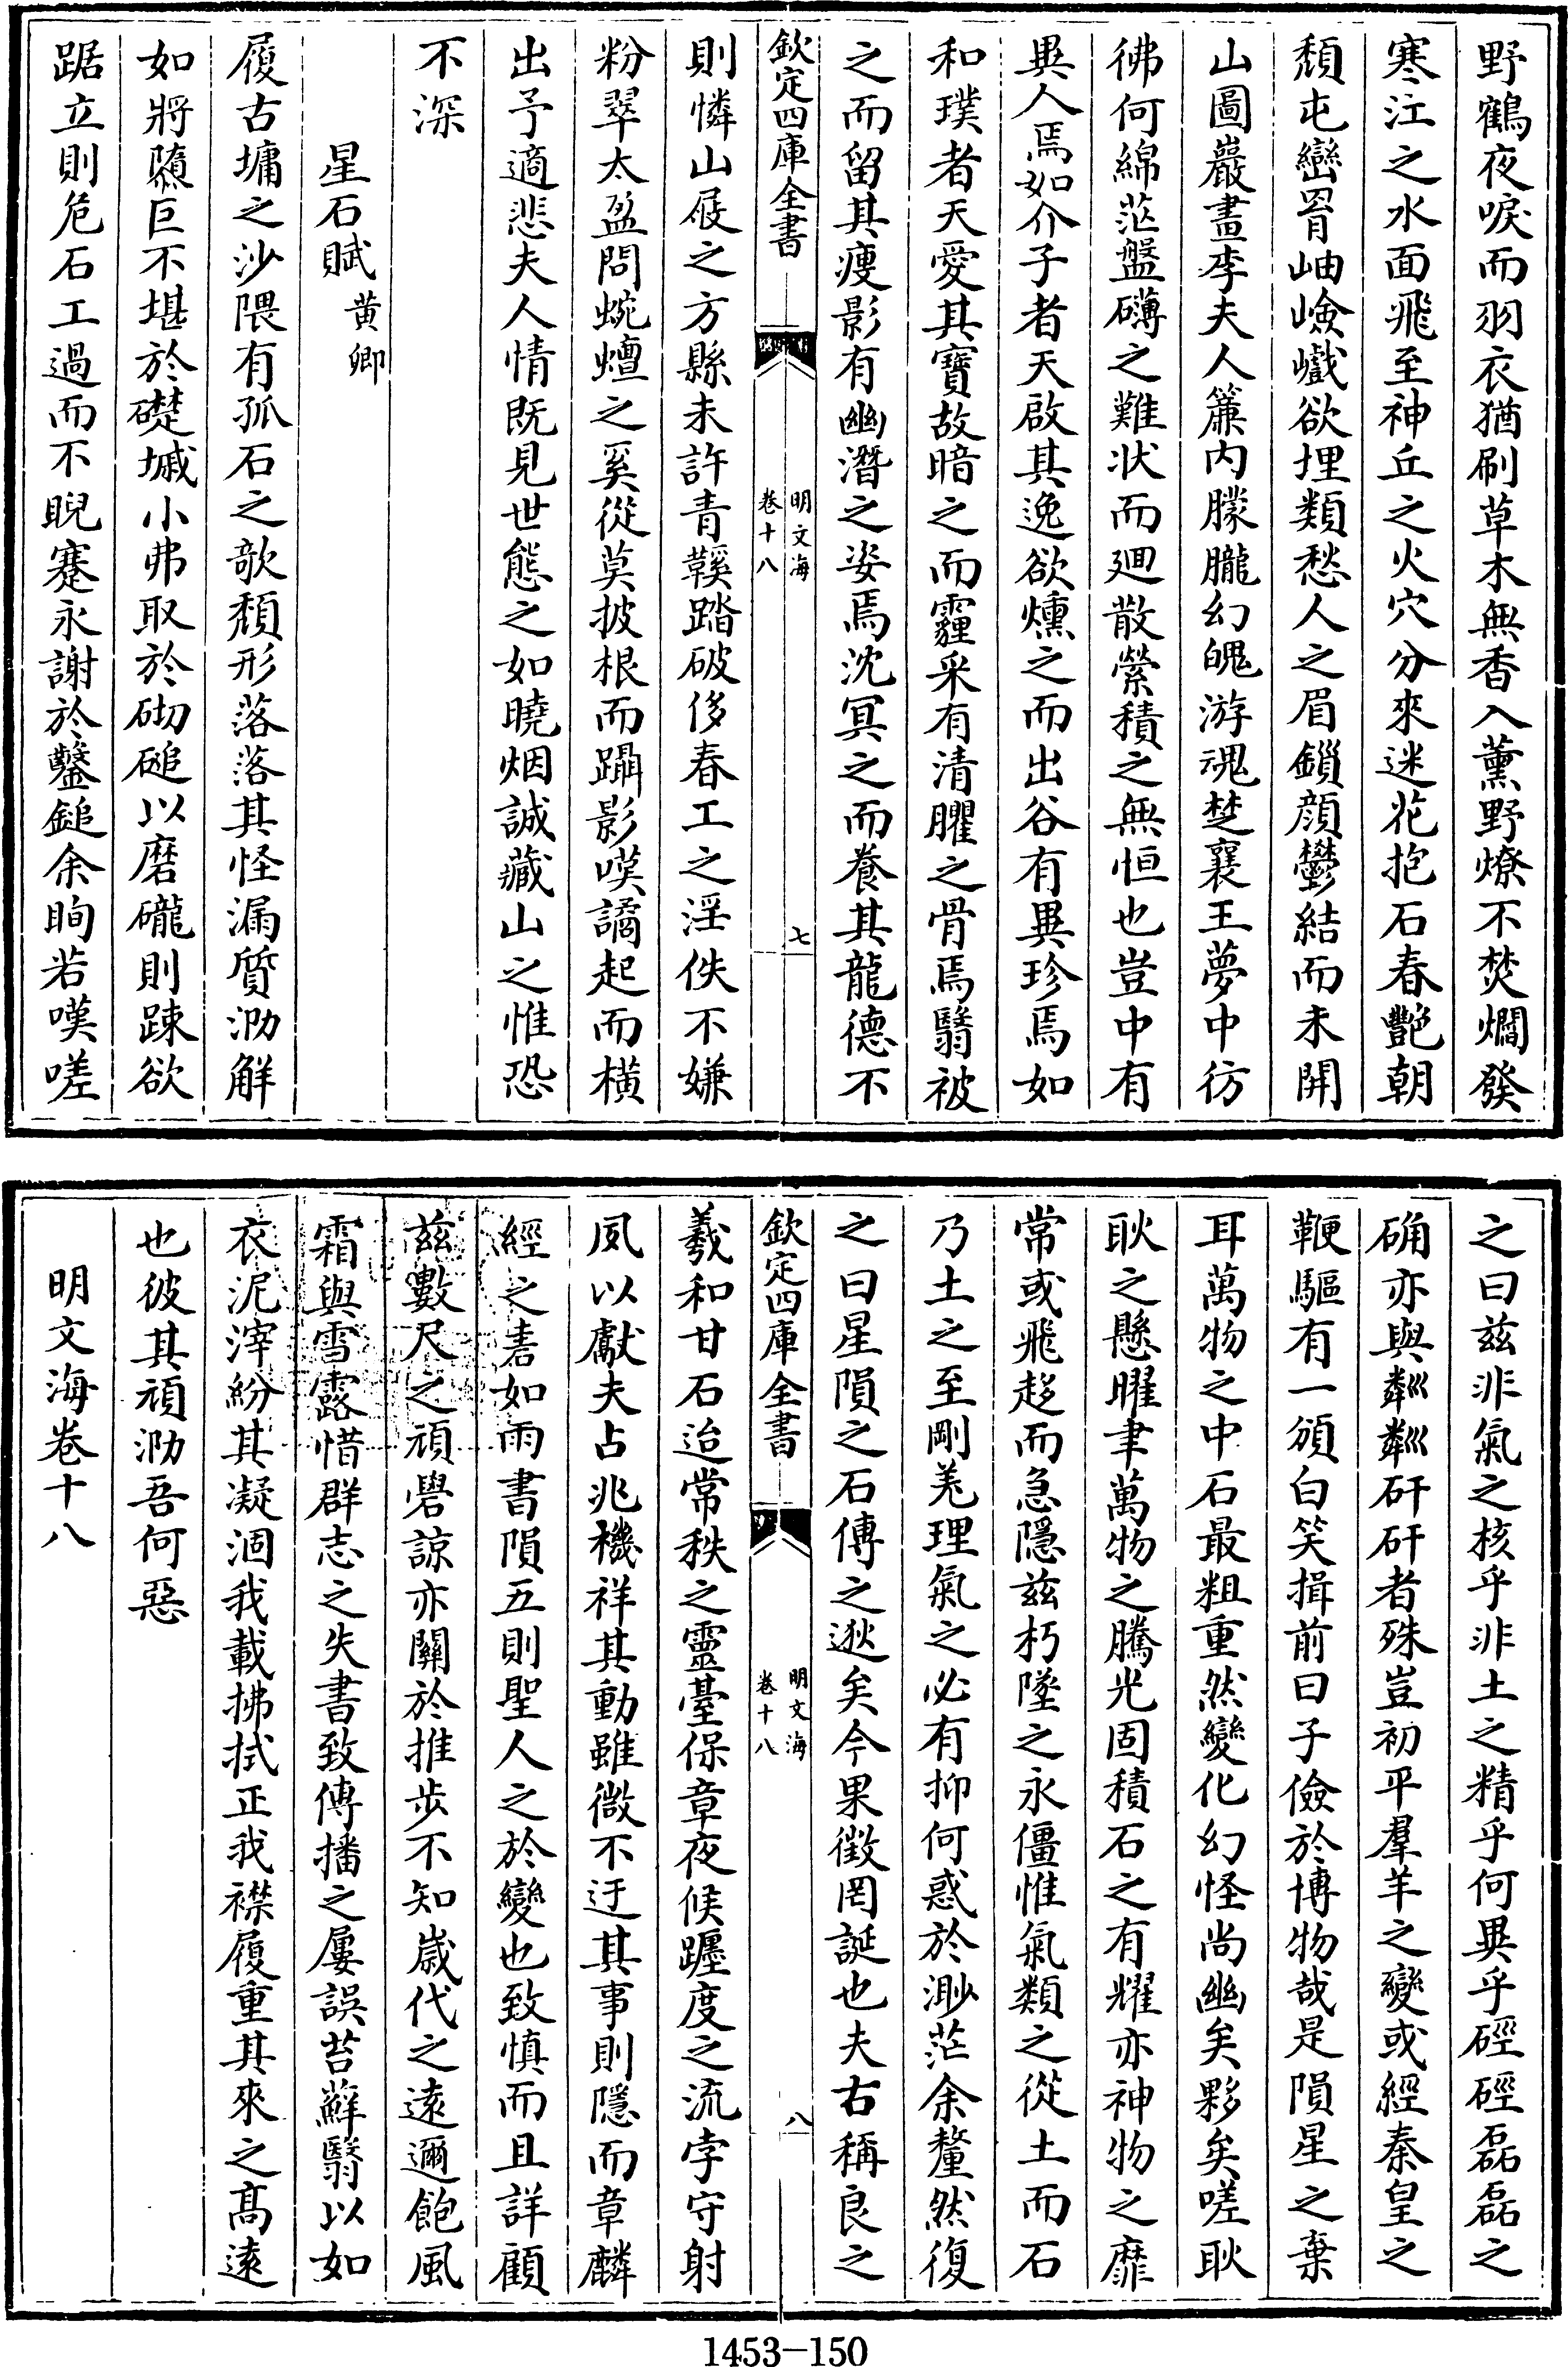 野鶴夜唳而羽衣猶刷草木無香入薰野燎不焚爓發
寒江之水面飛至神丘之火穴分來迷花抱石春艷朝
頹屯巒罥岫嶮巇欲埋類愁人之眉鎻顔鬱結而未開
山圖巖畫李夫人簾内朦朧幻魄游魂楚襄王夢中彷
彿何綿茫盤礴之難状而廻散縈積之無恒也豈中有
異人焉如介子者天啟其逸欲燻之而出谷有異珍焉如
和璞者天愛其寶故暗之而霾采有清臞之骨焉翳被
之而留其瘦影有幽潛之姿焉沈冥之而養其龍德不
欽定四庫全書
明文海
卷十八
七
則憐山屐之方縣未許青鞵踏破侈春工之淫佚不嫌
粉翠太盈問蜿蟺之奚從莫披根而躡影嘆譎起而橫
出予適悲夫人情既見世態之如曉烟誠藏山之惟恐
不深
星石賦 黄卿
履古墉之沙隈有孤石之欹頹形落落其怪漏質泐解
如將隳巨不堪於礎墄小弗取於砌磓以磨礲則踈欲
踞立則危石工過而不睨蹇永謝於鑿鎚余眴若嘆嗟
之曰兹非氣之核乎非土之精乎何異乎硜硜磊磊之
确亦與粼粼矸矸者殊豈初平羣羊之變或經秦皇之
鞭驅有一頒白笑揖前曰子儉於博物哉是隕星之棄
耳萬物之中石最粗重然變化幻怪尚幽矣夥矣嗟耿
耿之懸曜聿萬物之騰光固積石之有耀亦神物之靡
常或飛趍而急隱兹朽墜之永僵惟氣類之從土而石
乃土之至剛羌理氣之必有抑何惑於渺茫余釐然復
之曰星隕之石傳之逖矣今果徵罔誕也夫右稱良之
欽定四庫全書
明文海
卷十八
八
羲和甘石迨常秩之靈臺保章夜候躔度之流孛守射
夙以獻夫占兆機祥其動雖微不迂其事則隱而章麟
經之書如雨書隕五則聖人之於變也致慎而且詳顧
兹數尺之頑礐諒亦關於推步不知歲代之遠邇飽風
霜與雪露惜群志之失書致傳播之屢誤苔蘚翳以如
衣泥滓紛其凝涸我載拂拭正我襟履重其來之髙遠
也彼其頑泐吾何惡
明文海卷十八
1453-150